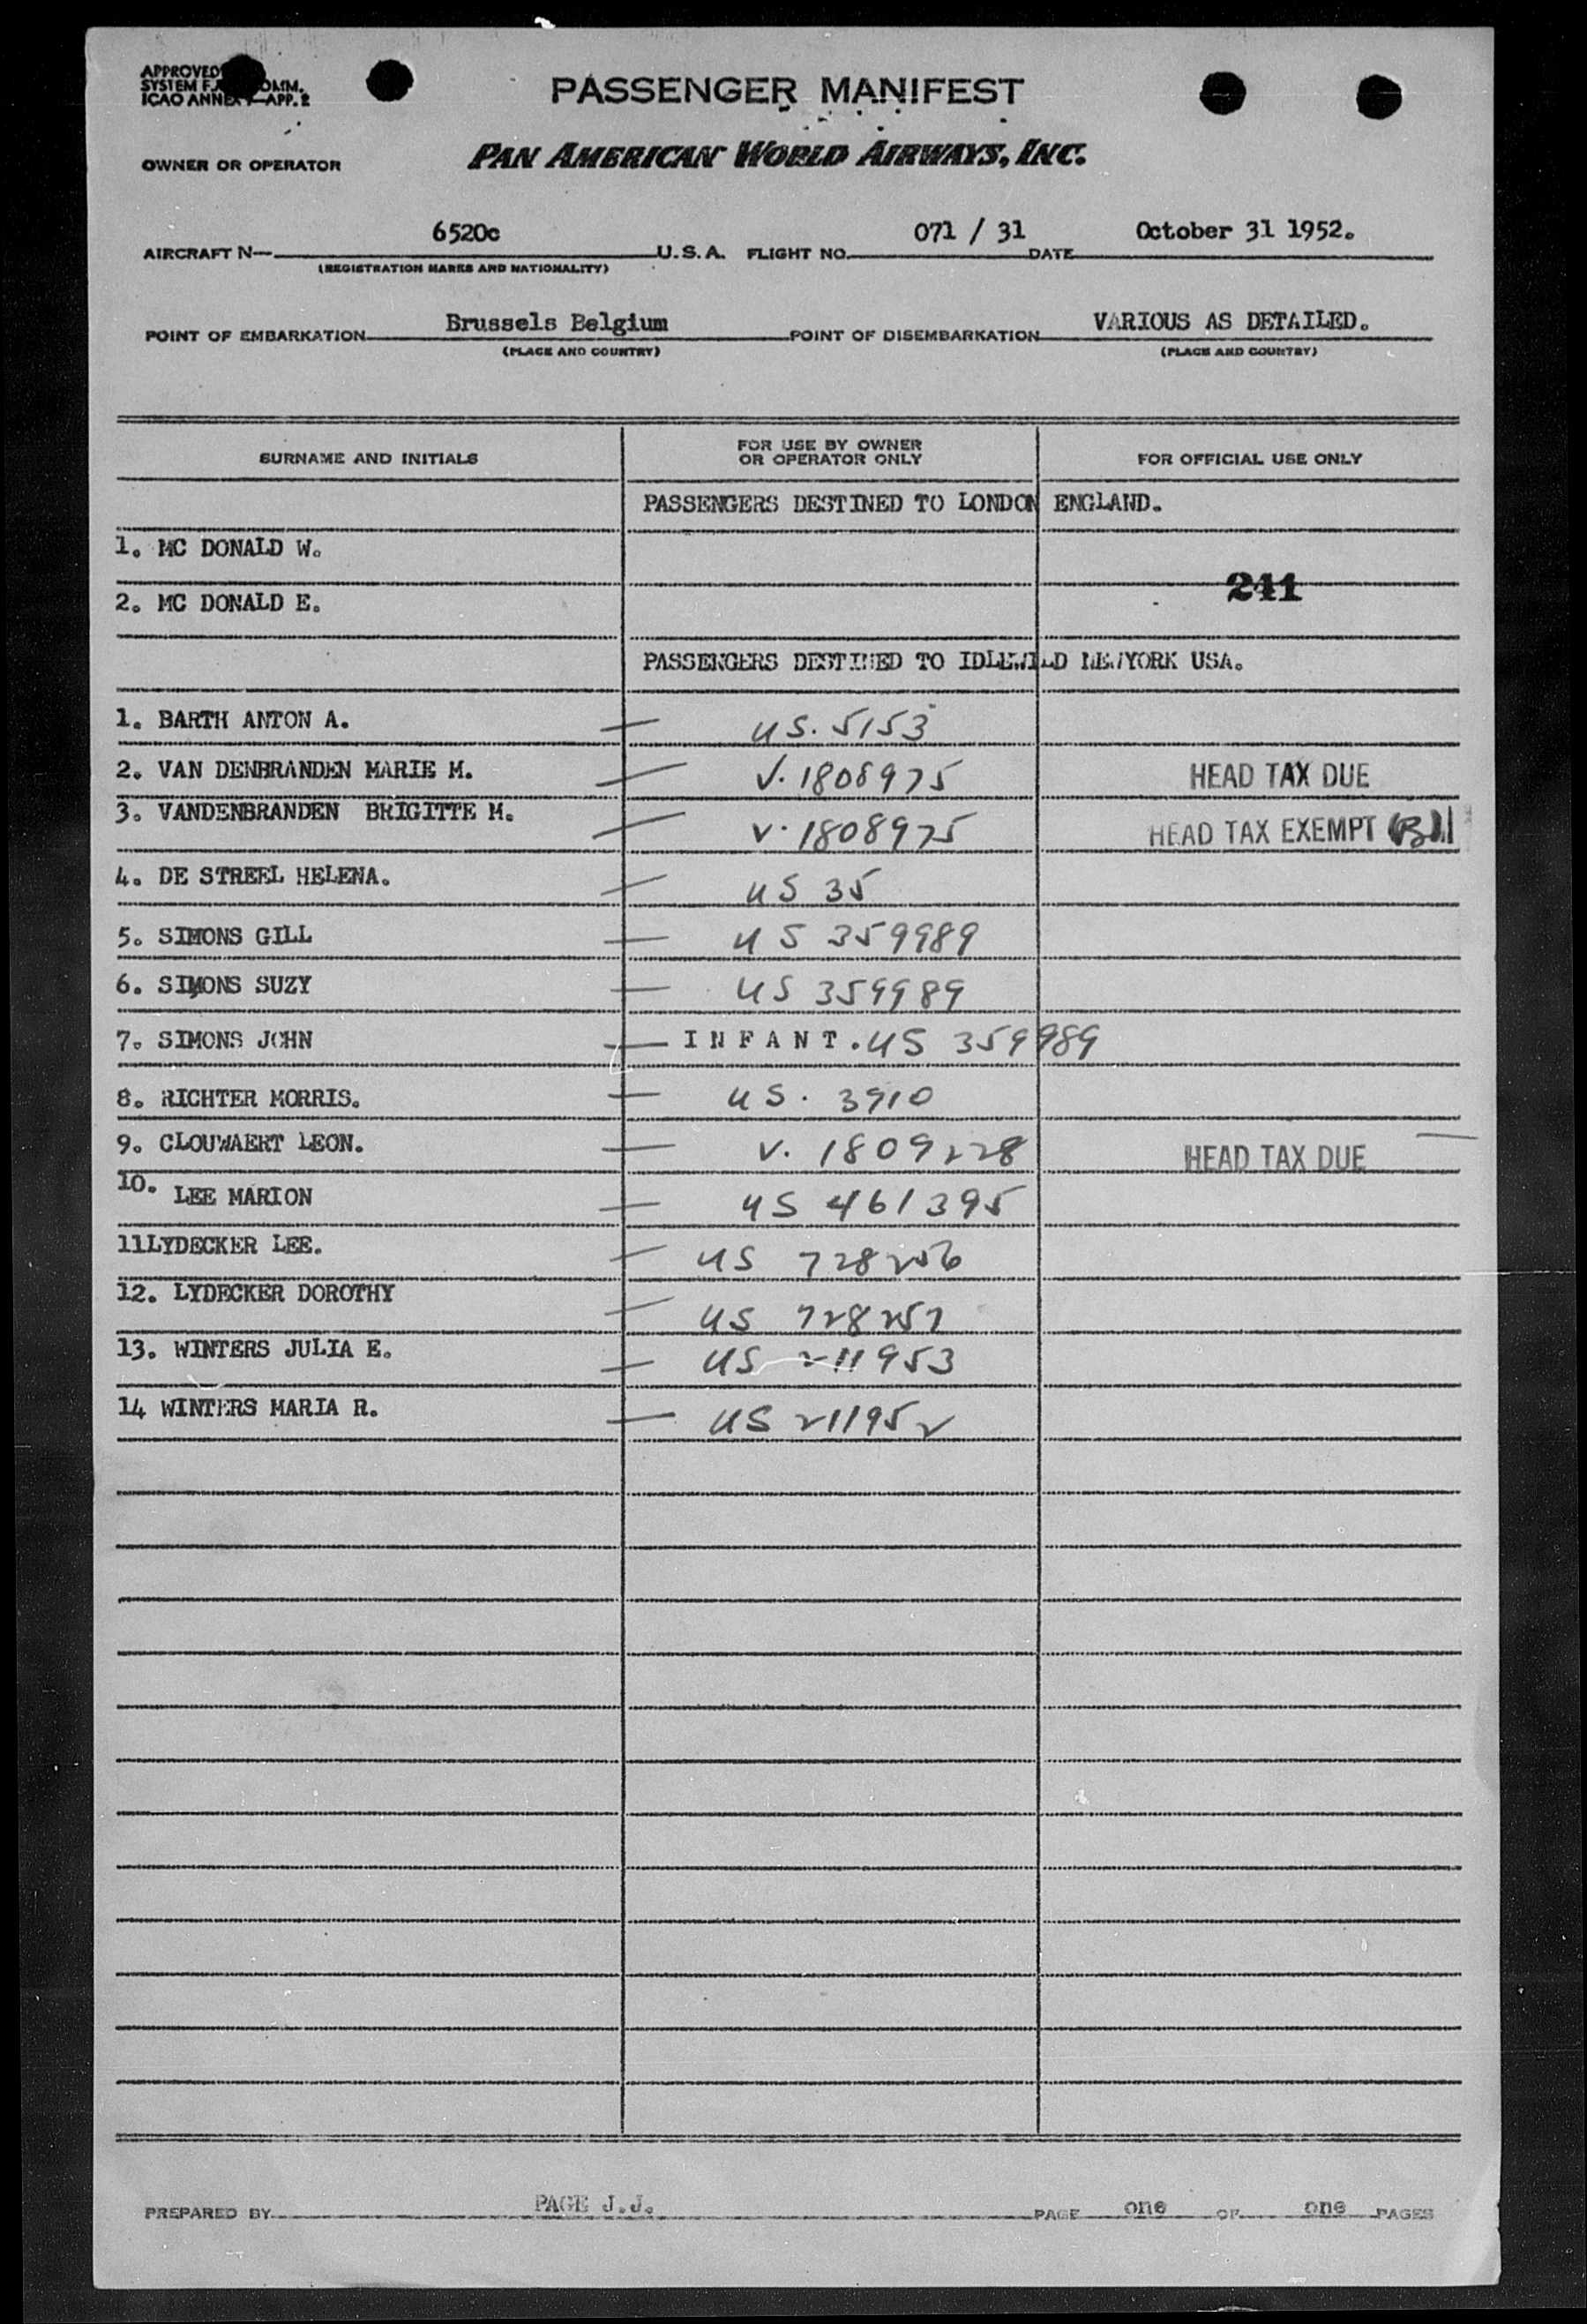 APPROVED
SYSTEM F.A. COMM.
ICAO ANNEX 9—APP. 2
PASSENGER MANIFEST
OWNER OR OPERATOR PAN AMERICAN WORLD AIRWAYS, INC.
AIRCRAFT N— 6520c U.S.A. FLIGHT NO. 071 / 31 DATE October 31 1952.
(REGISTRATION MARKS AND NATIONALITY)
POINT OF EMBARKATION Brussels Belgium POINT OF DISEMBARKATION VARIOUS AS DETAILED.
(PLACE AND COUNTRY) (PLACE AND COUNTRY)
SURNAME AND INITIALS FOR USE BY OWNER OR OPERATOR ONLY FOR OFFICIAL USE ONLY
PASSENGERS DESTINED TO LONDON ENGLAND.
1. MC DONALD W.
241
2. MC DONALD E.
PASSENGERS DESTINED TO IDLEWILD NEWYORK USA.
1. BARTH ANTON A. — US. 5153
2. VAN DENBRANDEN MARIE M. — V. 1808975 HEAD TAX DUE
3. VANDENBRANDEN BRIGITTE M. — V. 1808975 HEAD TAX EXEMPT
4. DE STREEL HELENA. — US 35
5. SIMONS GILL — US 359989
6. SIMONS SUZY — US 359989
7. SIMONS JOHN — INFANT. US 359989
8. RICHTER MORRIS. — US. 3910
9. CLOUWAERT LEON. — V. 1809228 HEAD TAX DUE
10. LEE MARION — US 461395
11LYDECKER LEE. — US 728256
12. LYDECKER DOROTHY — US 728257
13. WINTERS JULIA E. — US 211953
14 WINTERS MARIA R. — US 211952
PREPARED BY PAGE J.J. PAGE one OF one PAGES